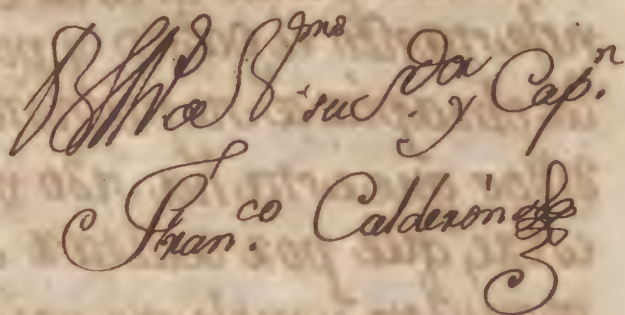 B L M.ª de V. ms su Ser.dor y Cap.n
Fran.co Calderón